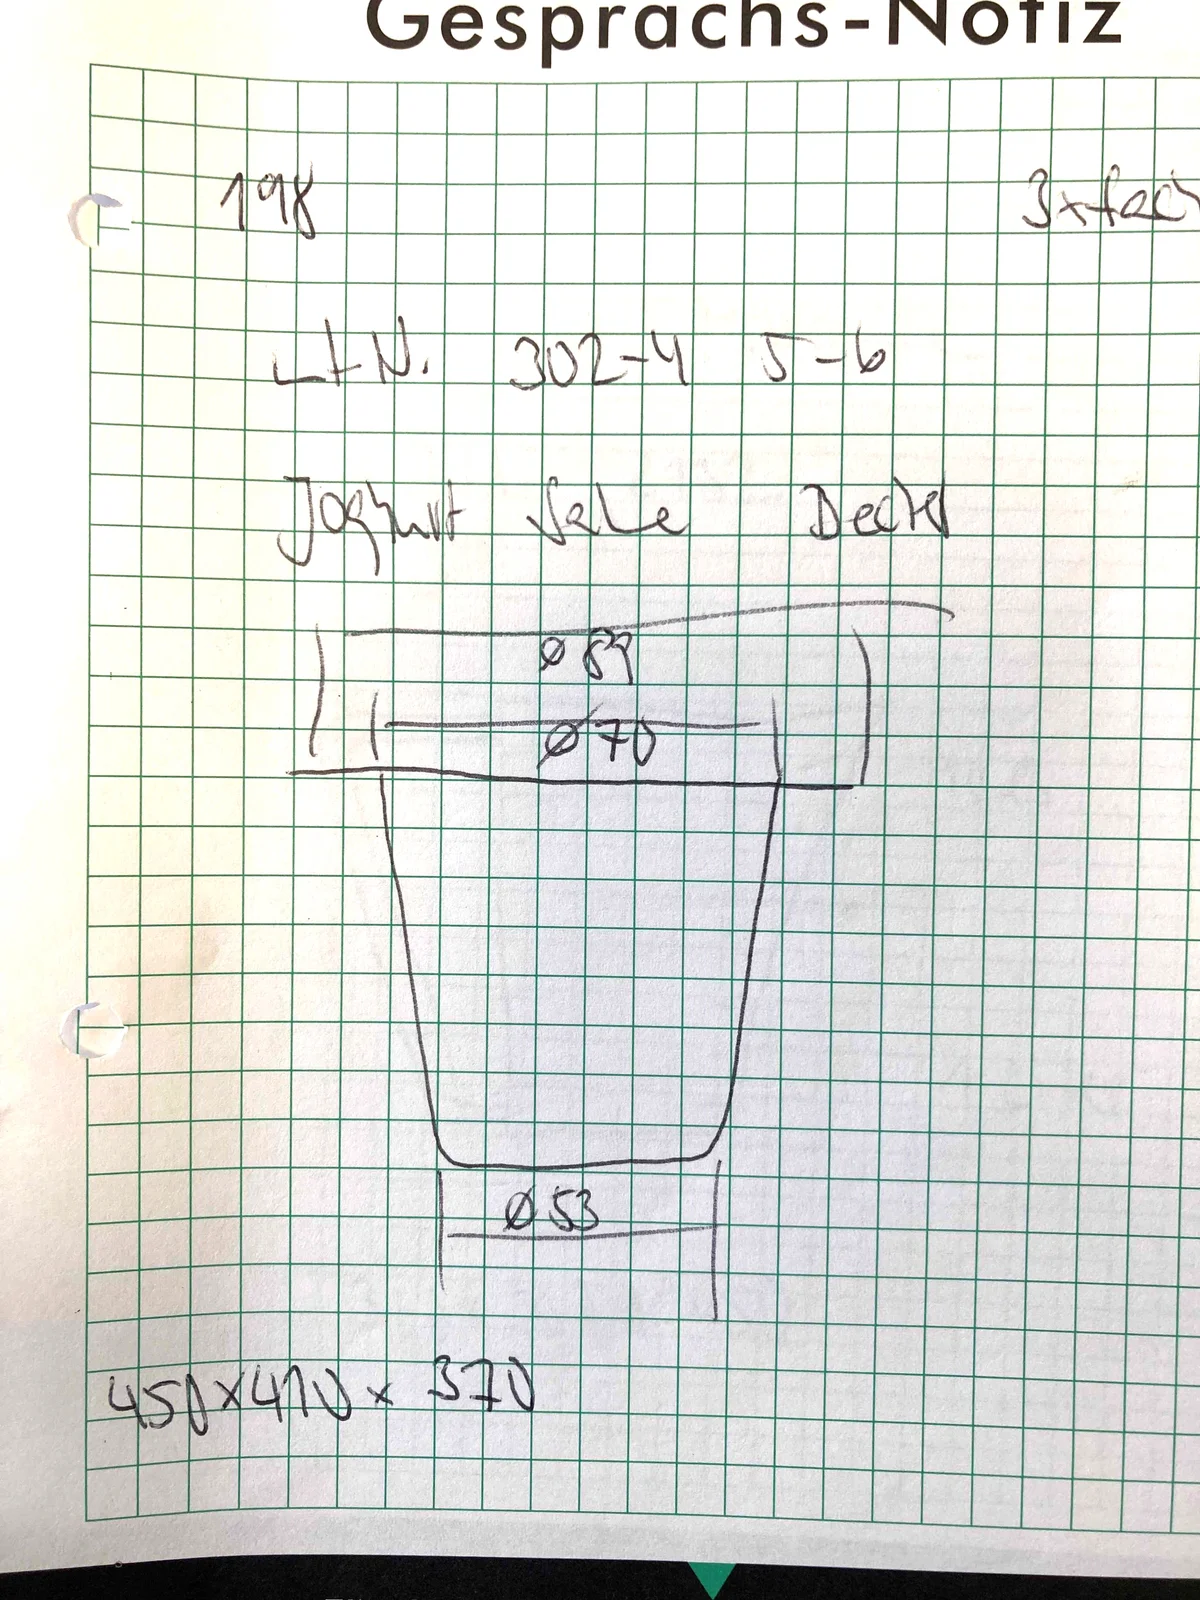 Gesprächs-Notiz
198 3xfach
Lt N. 302-4 5-6
Joghurt Sahne Deckel
Ø 89
Ø 70
Ø 53
450x410x 370